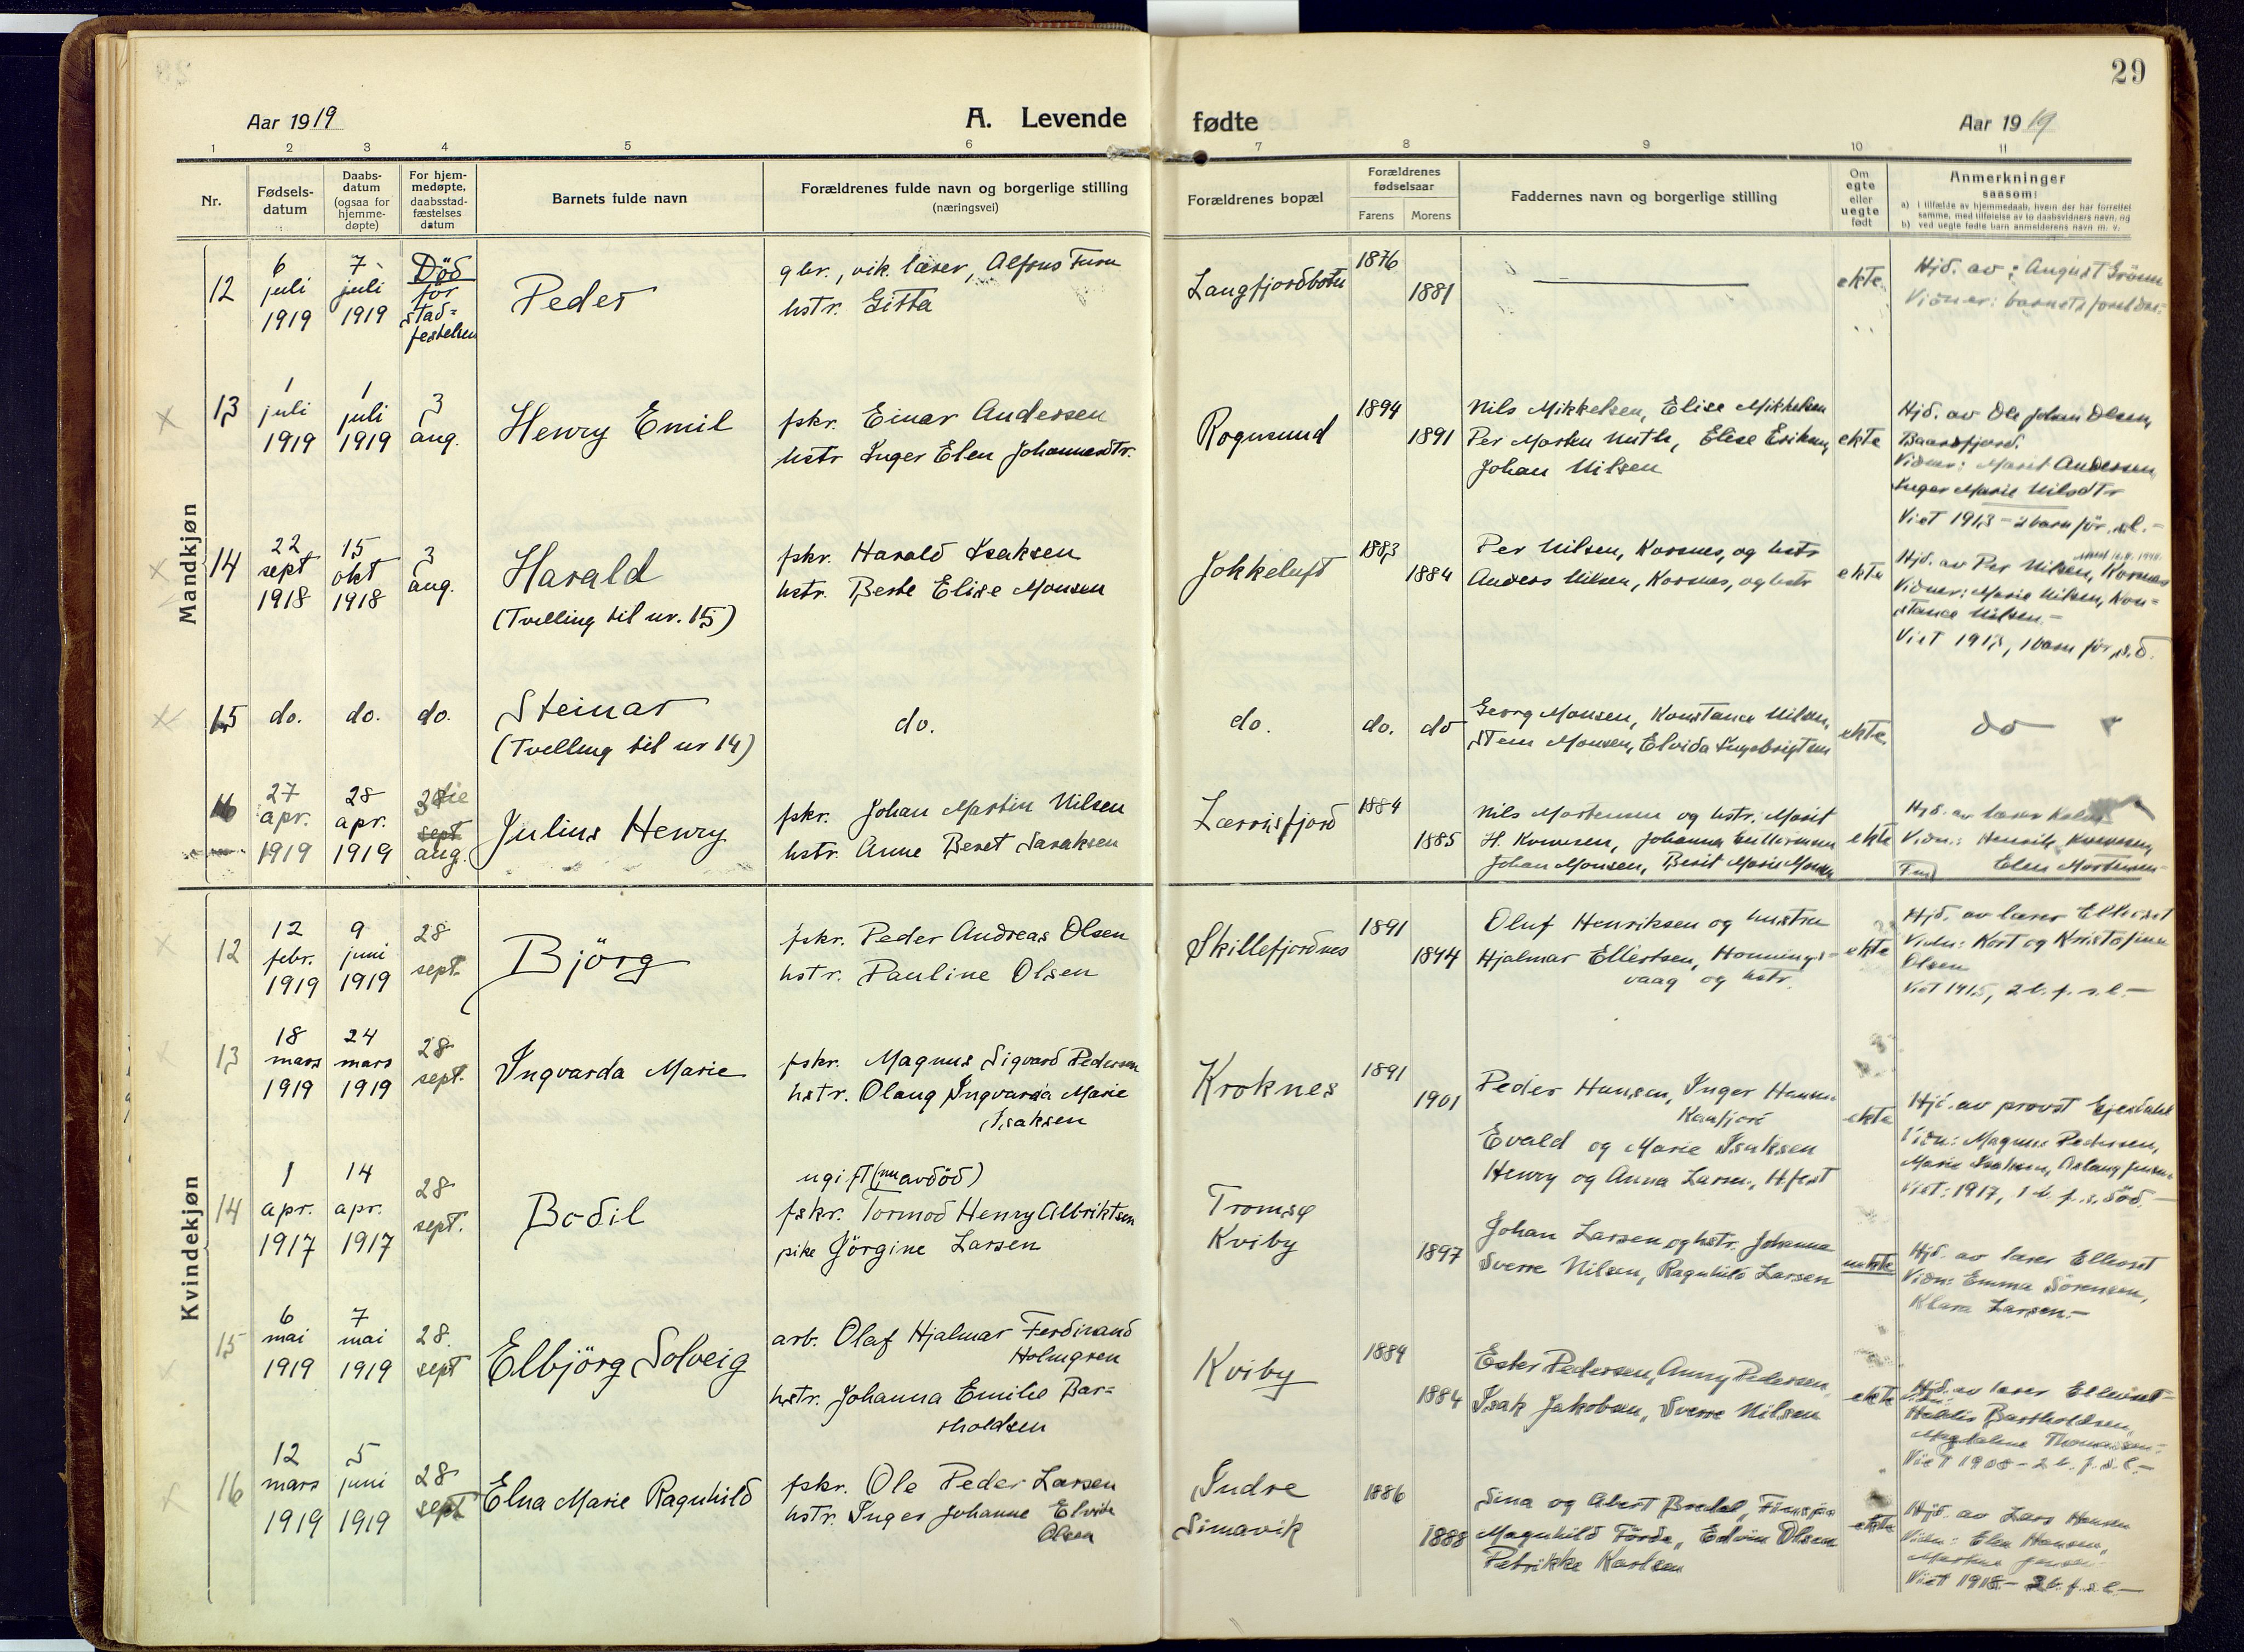 29
Aar 1919
A. Levende
fødte
Aar 1919
1 2 3 4 5 6 7 8 9 10 11
Nr.
Fødsels-
datum
Daabs-
datum
(ogsaa for
hjemme-
døpte)
For hjem-
medøpte,
daabsstad-
fæstelses
datum
Barnets fulde navn
Forældrenes fulde navn og borgerlige stilling
(næringsvei)
Forældrenes bopæl
Forældrenes
fødselsaar
Farens Morens
Faddernes navn og borgerlige stilling
Om
egte
eller
uegte
født
Anmerkninger
saasom:
a) i tilfælde av hjemmedaab, hvem der har forrettet
samme, med tilføielse av to daabsvidners navn, og
b) ved uegte fødte barn anmelderens navn m. v.
Mandkjøn
12
6
juli
1919
7
juli
1919
Död
för
stad=
festelsen
Peder
gbr., vik. lærer, Alfons
hstr. Gitta
Langfjordbotn
1876
1881
ekte.
Hjd. av: August
Vidner: barnets
13
1
juli
1919
1
juli
1919
3
aug.
Henry Emil
fskr. Einar Andersen
hstr Inger Elen Johannesdtr.
Rognsund
1894
1891
Nils Mikkelsen, Elise Mikkelsen
Per Morten Muth, Elise Eriksen,
Johan Nilsen
ekte
Hjd. av Ole Johan Olsen,
Vidner: Marit Andersen,
Inger Marie Nilsdtr
Viet 1913 - 2 barn før, s.l. -
14
22
sept
1918
15
okt
1918
3
aug.
Harald
(Tvilling til nr. 15)
fskr. Harald Isaksen
hstr. Berte Elise Monsen
Jokkeluft
1883
1884
Per Nilsen, Korsnes, og hstr
Anders Nilsen, Korsnes, og hstr
ekte
Hjd. av Per Nilsen, Korsnes
Vidner: Marie Nilsen, Kon=
stance Nilsen.-
Viet 1917, 1 barn før, s.d.
15
do.
do.
do.
Steinar
(Tvilling til nr 14)
do.
do.
do.
do
Georg Monsen, Konstance Nilsen,
Monsen, Elvida Ingebrigtsen
ekte.
do
16
27
apr.
1919
28
apr.
1919
sept
aug.
Julius Henry
fskr. Johan Martin Nilsen
hstr. Anne Beret Saraksen
Lærrisfjord
1884
1885
Nils Mortensen og hstr. Marit
H. Kvænsen, Johanna
Johan Monsen, Berit Marie Monsen
ekte
Hjd. av lærer
Vidn.: Henrik Kvænsen,
Elen Mortensen
Kvindekjøn
12
12
febr.
1919
9
juni
1919
28
sept.
Björg
fskr. Peder Andreas Olsen
hstr. Pauline Olsen
Skillefjordnes
1891
1894
Oluf Henriksen og hustru
Hjalmar Ellertsen, Honnings=
vaag og hstr.
ekte
Hjd. av lærer Ellevset
Vidn: Kort og Kristofine
Olsen
Viet 1915, 2 b. f. s. l. -
13
18
mars
1919
24
mars
1919
28
sept.
Ingvarda Marie
fskr. Magnus Sigvard Pedersen
hstr. Olaug Ingvarda Marie
Isaksen
Kroknes
1891
1901
Peder Hansen, Inger Hansen
Kaafjord
Evald og Marie Isaksen
Henry og Anna Larsen, Hfest
ekte
Hjd. av provst Gjerdahl
Vidn: Magnus Pedersen,
Marie Isaksen, Aslaug Jensen
Viet: 1917, 1 b. f. s. död. -
14
1
apr.
1917
14
apr.
1917
28
sept.
Bodil
ugift (nu avdöd)
fskr. Tormod Henry Albriktsen
pike Jörgine Larsen
Tromsø
Kviby
1897
Johan Larsen og hstr. Johanna
Sverre Nilsen, Ragnhild Larsen
uekte
Hjd. av lærer Ellevset
Vidn: Emma Sörensen,
Klara Larsen.-
15
6
mai
1919
7
mai
1919
28.
sept
Elbjörg Solveig
arb. Olaf Hjalmar Ferdinand
Holmgren
hstr. Johanna Emilie Bar=
tholdsen
Kviby
1884
1884
Ester Pedersen, Anny Pedersen,
Isak Jakobsen, Sverre Nilsen
ekte
Hjd. av lærer Ellevset-
Bartholdsen,
Magdalene Thomassen.
Viet 1908 - 2 b. f. s. l. -
16
12
mars
1919
5
juni
1919
28
sept
Elna Marie Ragnhild
fskr. Ole Peder Larsen
hstr. Inger Johanne Elvida
Olsen
Indre
Simavik
1886
1888
Sina og Albert Bredal,
Magnhild Förde, Edvin Olsen
Petrikke Karlsen
ekte
Hjd. av Lars Hansen
Vidn: Elen Hansen,
Viet 1918 - b. f. s. l. -